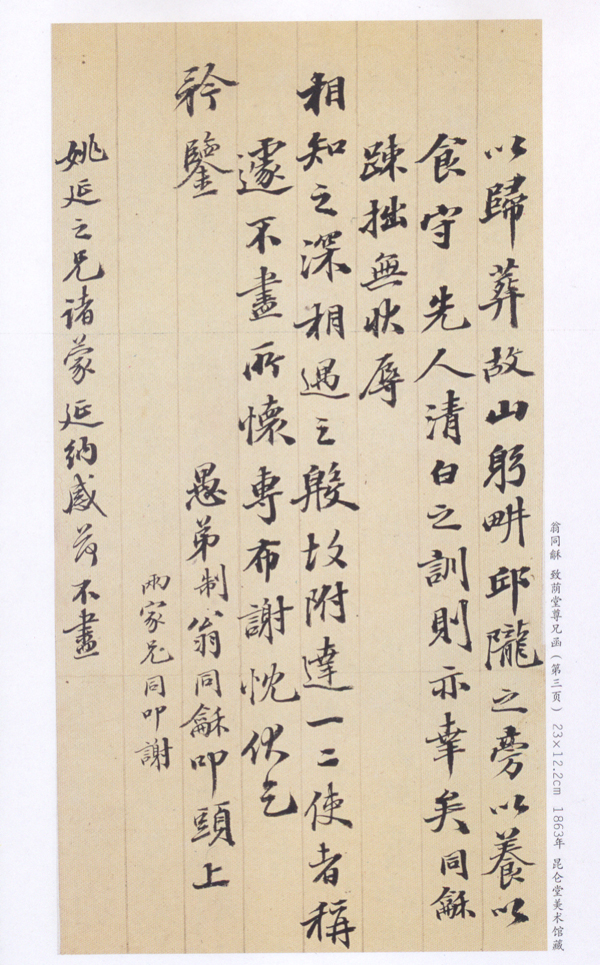 以歸葬故山躬畊邱隴之旁以養以
食守先人清白之訓則亦幸矣同龢
踈拙無狀辱
相知之深相遇之殷故附達一二使者稱
遽不盡所懷專布謝忱伏乞
矜鑒
愚弟制翁同龢叩頭上
兩家兄同叩謝
姚延之兄諸蒙延納感荷不盡
翁同龢 致荫堂尊兄函（第三页） 23×12.2cm 1863年 昆仑堂美术馆藏